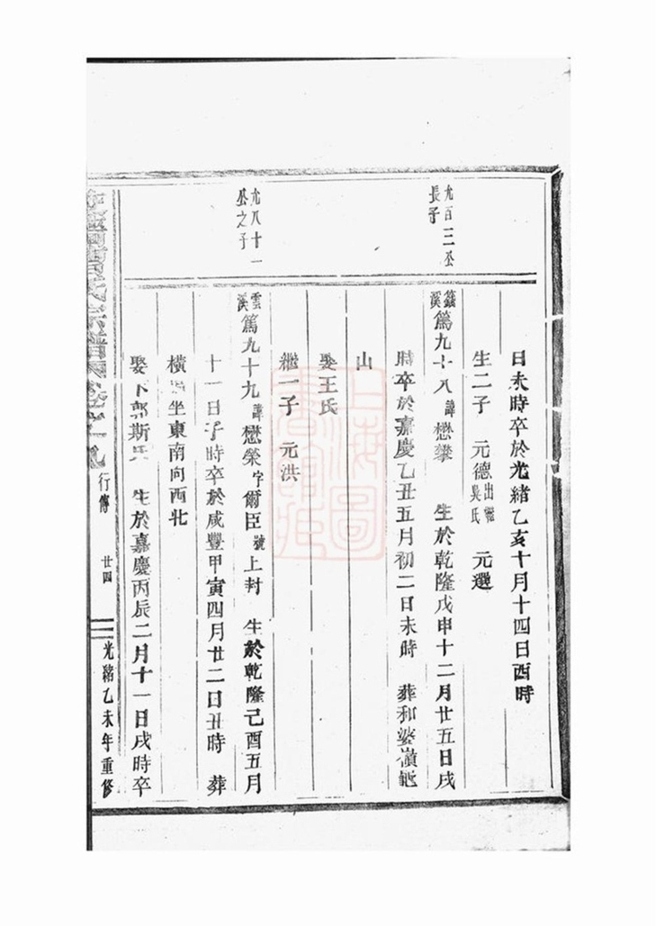 日未時卒於光緒乙亥十月十四日酉時
生二子 元德出繼吳氏 元選
允百三公長子
篤九十八諱懋 生於乾隆戊申十二月廿五日戌
時卒於嘉慶乙丑五月初二日未時 葬和婆嶺
山
娶王氏
繼一子 元洪
允八十一公之子
雲溪 篤九十九諱懋榮字爾臣號上封 生於乾隆己酉五月
十一日子時卒於咸豐甲寅四月廿二日丑時 葬
橫 坐東南向西北
娶下郭斯氏 生於嘉慶丙辰二月十一日戌時卒
氏宗譜 卷之十九 行傳 廿四 光緒乙未年重修
上海圖書館